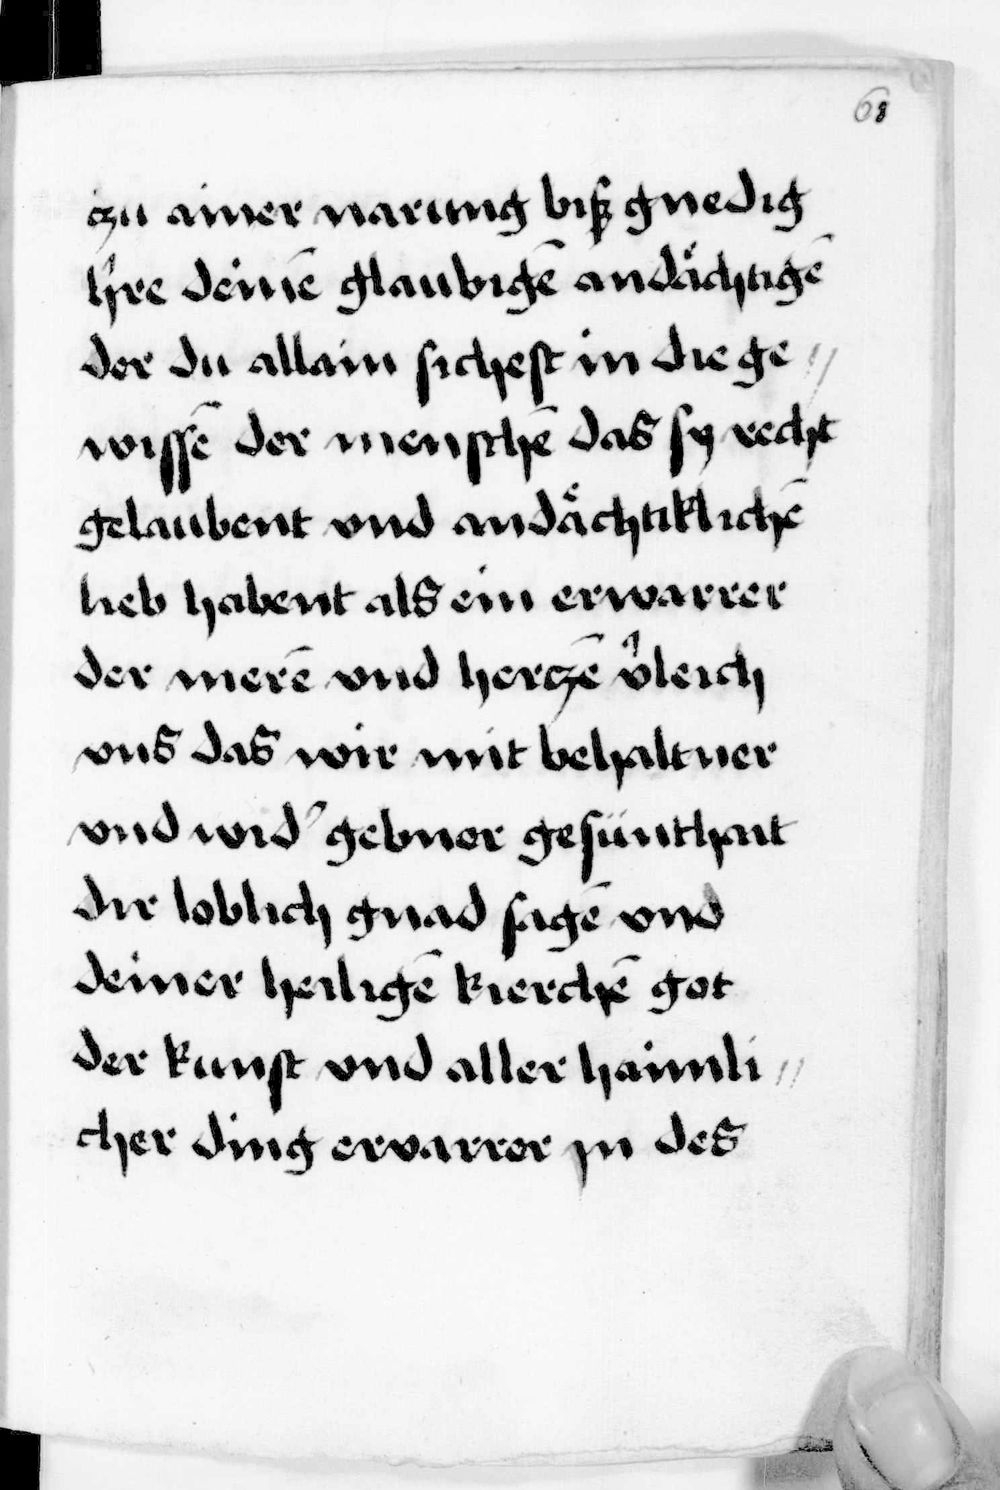 68
zu ainer narung biß gnedig
hre deinē glaubigē andächtigē
der du allain sichest in die ge //
wissē der menschē das sy recht
gelaubent vnd andächtiklichē
lieb habent als ein erwarrer
der merē vnd herczē v̉leich
vns das wir mit behaltner
vnd wid' gebner gesünthait
dir loblich gnad sagē vnd
deiner heiligē kierchē got
der kunst vnd aller haimli //
cher ding ervarrer in des